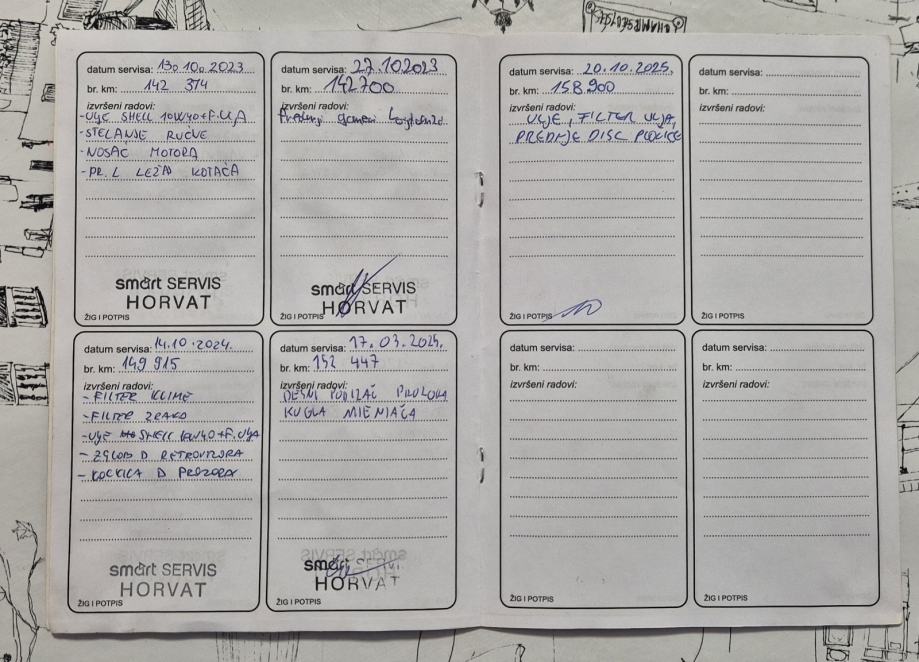 datum servisa: 13.10.2023
br. km: 142 374
izvršeni radovi:
-ULJE SHELL 10W40+F.ULJA
-STEZANJE RUČNE
-NOSAČ MOTORA
-PR. L LEŽAJ KOTAČA
smart SERVIS
HORVAT
ŽIG I POTPIS
datum servisa: 27.10.2023
br. km: 142700
izvršeni radovi:
smart SERVIS
HORVAT
ŽIG I POTPIS
datum servisa: 14.10.2024.
br. km: 149 915
izvršeni radovi:
-FILTER KLIME
-FILTER ZRAKA
-ULJE SHELL 10W40+F.ULJA
- ZGLOB D RETROVIZORA
- KOCKICA D PROZORA
smart SERVIS
HORVAT
ŽIG I POTPIS
datum servisa: 17.03.2025.
br. km: 152 447
izvršeni radovi:
DESNI PODIZAČ PROZORA
KUGLA MJENJAČA
smart SERVIS
HORVAT
ŽIG I POTPIS
datum servisa: 20.10.2025.
br. km: 158.900
izvršeni radovi:
ULJE, FILTER ULJA,
PREDNJE DISC PLOČICE
ŽIG I POTPIS
datum servisa:
br. km:
izvršeni radovi:
ŽIG I POTPIS
datum servisa:
br. km:
izvršeni radovi:
ŽIG I POTPIS
datum servisa:
br. km:
izvršeni radovi:
ŽIG I POTPIS